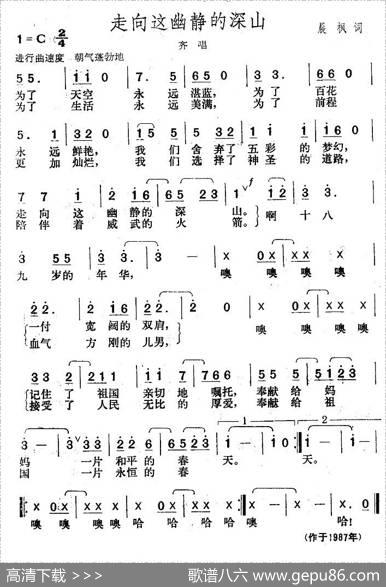 走向这幽静的深山
1=C 2/4
齐唱
晨枫词
进行曲速度 朝气蓬勃地
为了 天空 永远湛蓝, 为了 百花
为了 生活 永远美满, 为了 前程
永远鲜艳, 我们舍弃了五彩的梦幻,
更加灿烂, 我们选择了神圣的道路,
走向这幽静的深山。 啊十八
陪伴着威武的火箭。
九岁的年华, 噢 噢
一付宽阔的双肩, 噢 噢 噢
血气方刚的儿男,
记住了祖国亲切地嘱托, 奉献给妈
接受了人民无比的厚爱, 奉献给祖
妈 一片和平的春天。 天。
国 一片永恒的春
噢 噢 噢 哈 哈 哈!
(作于1987年)
高清下载 >>>
歌谱八六 www.gepu86.com